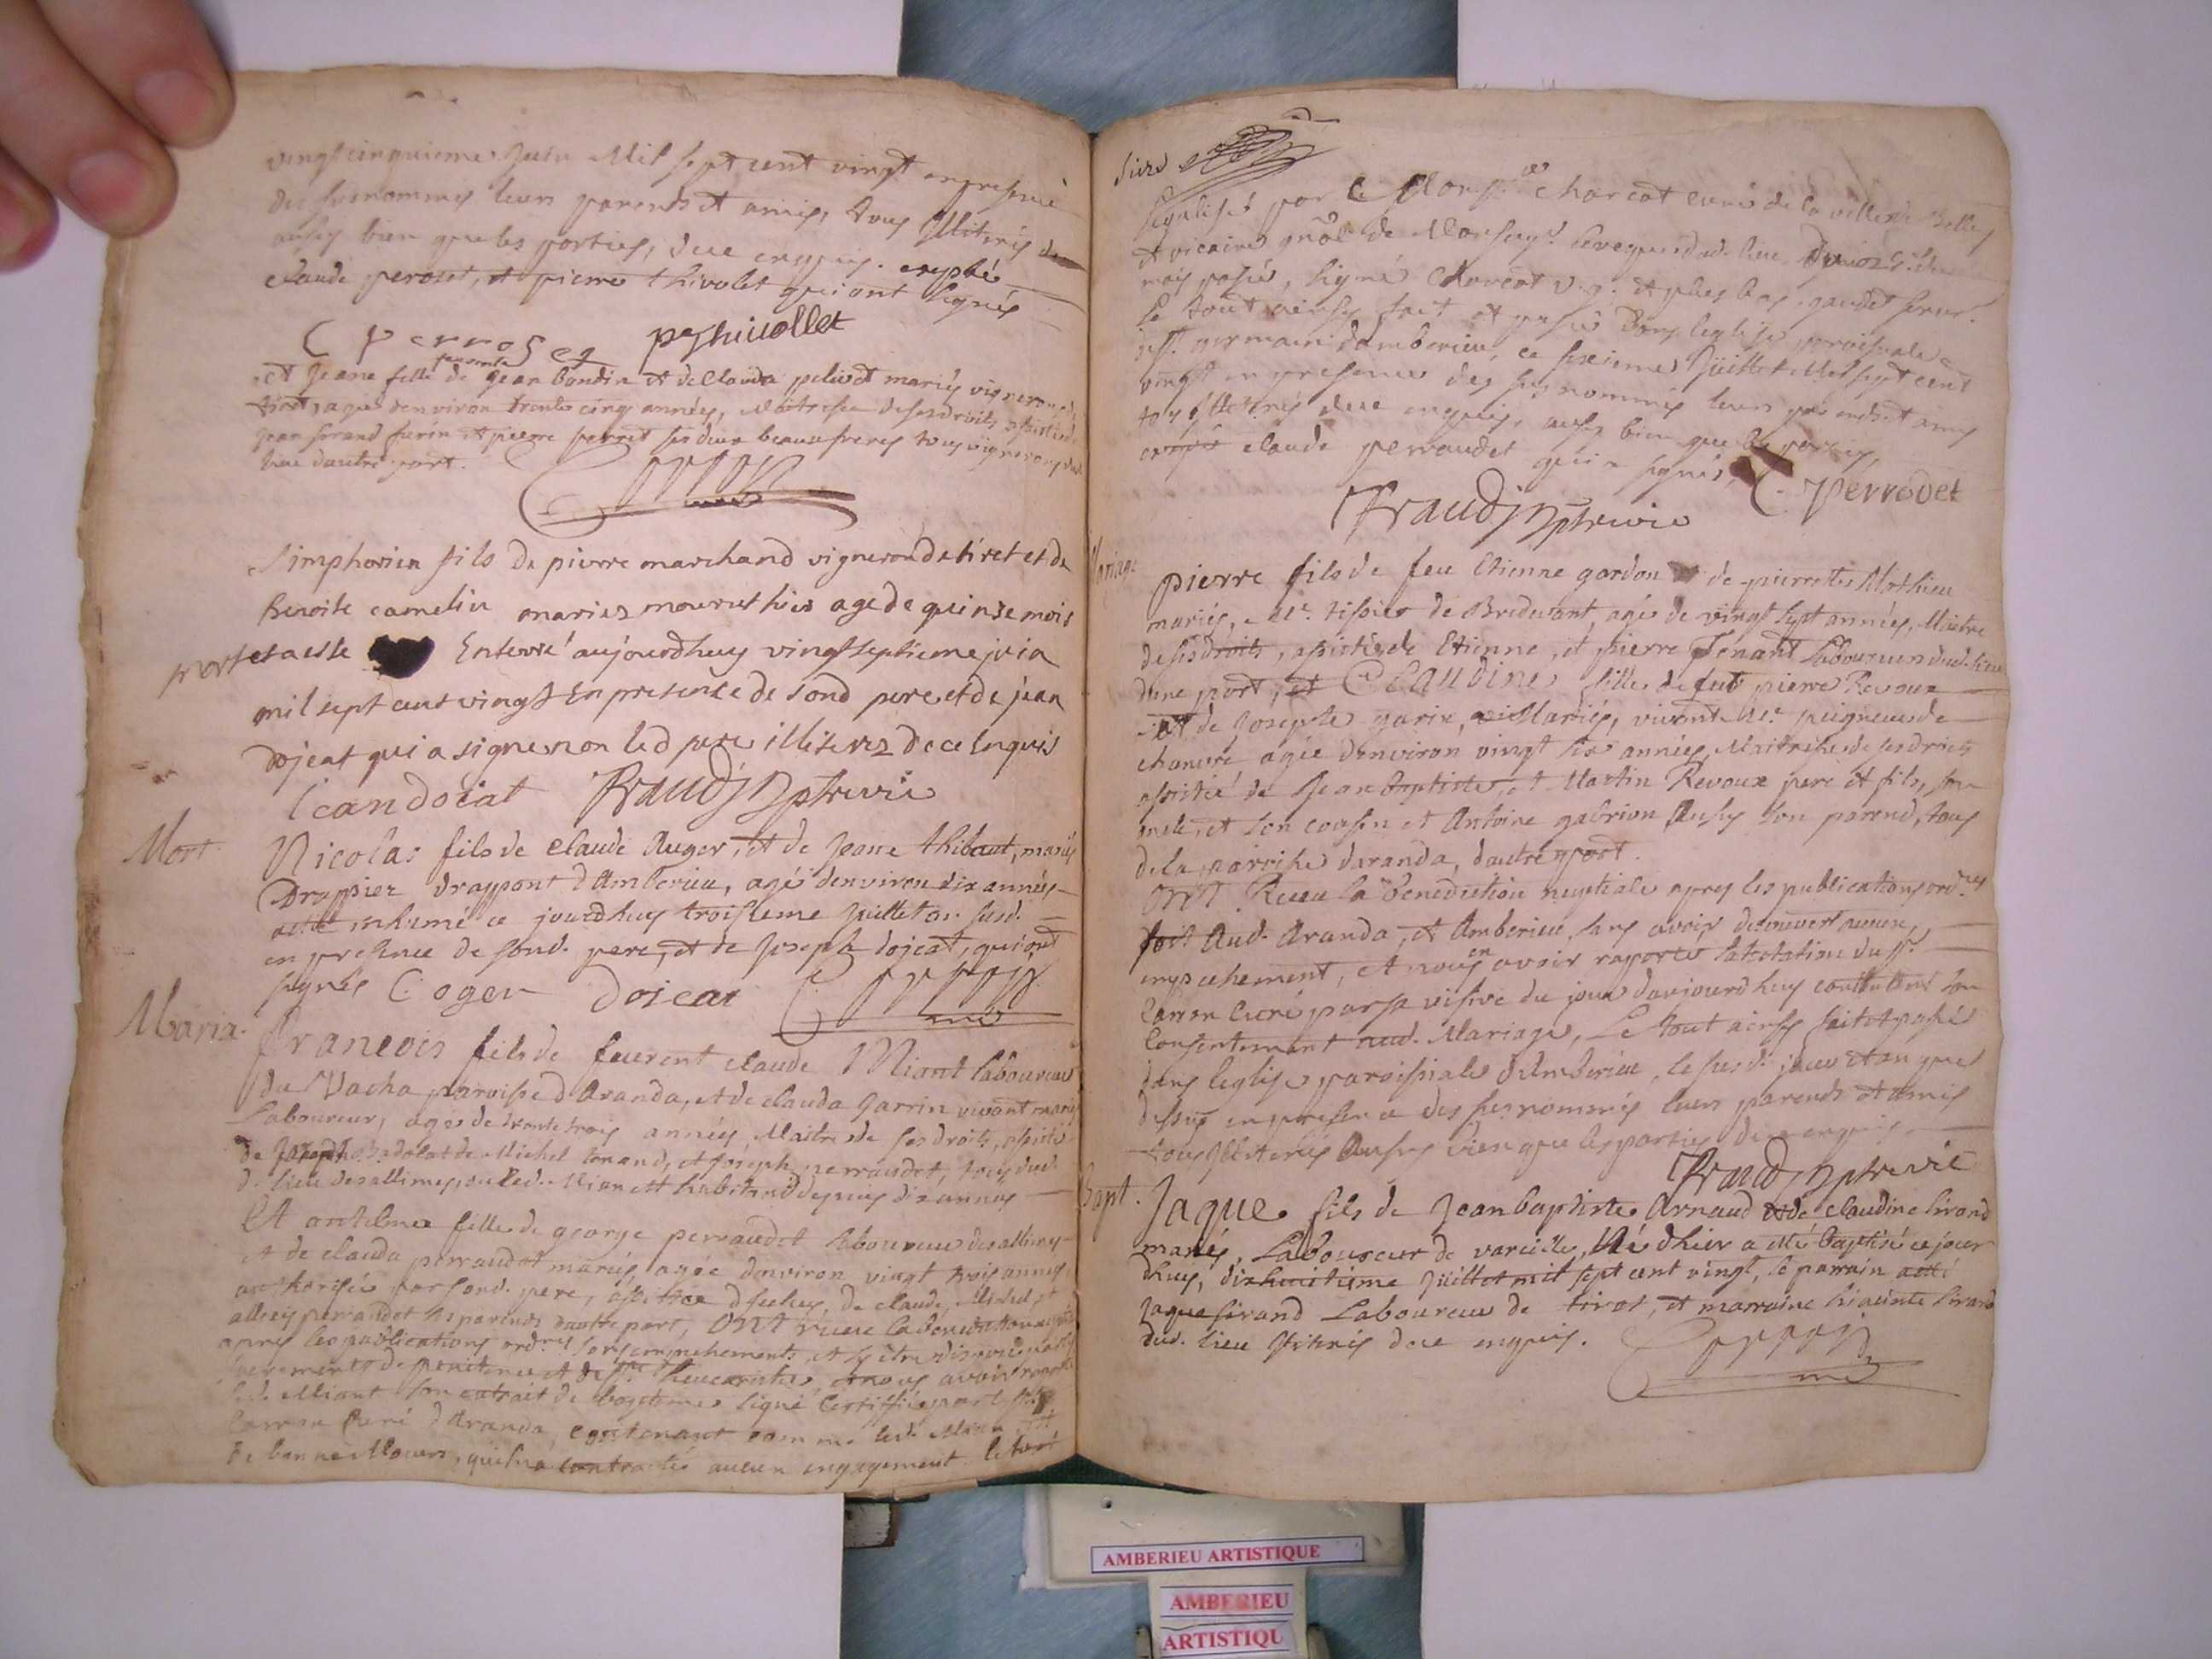 vingt cinquieme Juin Mil sept cent vingt en presence
des susnommés leurs parents et amis, tous illiterés de
ausy bien que les parties, de ce enquis. excepté
claude peroset, et pierre thivolet qui ont signés
C perroset pe thivollet
et Jeane fille de Jean bondin et de Clauda pelisset mariés vignerons de
tiret, agée denviron trente cinq années, Maitresse de ses droits assistée de
Jean sirand furin et pierre perret ses deux beaux freres tous vignerons dud.
lieu dautre part.
Simphorien fils de pierre marchand vigneron de tiret et de
Benoite camelin mariez mourut hier age de quinse mois
mort et a esté Enterré aujourdhuy vingt septieme juin
mil sept cent vingt En presence de sond pere et de jean
dojeat qui a signe non led pere illiterez de ce Enquis
Jean dojat
Mort. Nicolas fils de claude Auger, et de Jeane thibaut, mariés
Drappier drappant d'Amberieu, agé denviron dix années
a été inhumé ce jourdhuy troisieme Juillet an susd.
en presence de sond. pere, et de Joseph dojeat, qui ont
signés C. oger Dojeat
Maria. Francois fils de feu rent claude Miant laboureur
du Vacha parroisse d'Aranda, et de clauda Jarrin vivant mariés
Laboureur, agés de trente trois années, Maitre de ses droits, assisté
de Michel tenand, et Joseph perraudet, tous dud.
d. lieu des allimes, ou led. Miant est habitant depuis dix années
Et anthelmea fille de george perraudet laboureur des allimes
et de clauda perraudet mariés, agée denviron vingt trois années
authorisée par sond. pere, assistée diceluy, de claude, Michel, et
allexis perraudet ses parents dautre part, Ont receu la benediction nuptiale
apres les publications ordres. sans empechements, et sy être disposés par les
sacrements de penitence et de ste Heucaristie, et nous avoir raporté
led. Miant son extrait de bapteme signé Certiffié par le sr
Carron Curé dAranda, contenant comme led. Miant est
de bonnes Moeurs, qu'il n'a contracté aucun engagement le tout
legalisé par Charcot curé de la ville de Belley
et vicaire gnâl de Monseigr. leveque dud. lieu
mois passé, signé Charcot v. g. et plus bas gaudet
le tout ainsy fait et passé dans leglise parroissiale
de st. germain damberieu, ce sixieme Juillet Mil sept cent
vingt en presence des susnommés leurs parends et amis
tous illiterés de ce enquis, ausy bien que les parties,
excepté claude perraudet qui a signés, C. perrodet
Mariage pierre fils de feu Etienne gordon et de pierrette Mathieu
mariés, Me. tissier de Bredevent, agé de vingt sept années, Maitre
de ses droits, assisté de Etienne, et pierre Tenant Laboureurs dud. lieu
dune part, et Claudine fille de feu pierre Revoux
et de Josepte garin, Mariés, vivant Me. peigneur de
chanvre agée denviron vingt six années, Maitresse de ses droits
assistée de Jean baptiste, et Martin Revoux pere et fils, son
oncle, et son cousin et Antoine gabrion Ausy son parend, tous
de la parroisse daranda, dautre part.
Ont Receu la benediction nuptiale apres les publications ordres
fait Aud. Aranda, et Amberieu, sans avoir decouvert aucun
empechement, et nous en avoir raporté latestation du sr.
Carron Curé par sa missive du jour daujourdhuy contenant son
Consentement aud. Mariage, Le tout ainsy fait et passé
dans leglise parroissiale d'Amberieu, le susd. jour et an que
dessus en presence des susnommés leurs parends et amis
tous Illiterés Ausy bien que les parties de ce enquis
Bapt. Jaque fils de Jean baptiste Arnaud et de claudine Sirand
mariés, Laboureur de vareille, Né dhier a été baptisé ce jour
dhuy, dixhuitieme Juillet mil sept cent vingt, le parrain a été
Jaque sirand Laboureur de tiret, et marraine hiacinte sirand
dud. lieu illiterés de ce enquis.
AMBERIEU ARTISTIQUE
AMBERIEU
ARTISTIQU